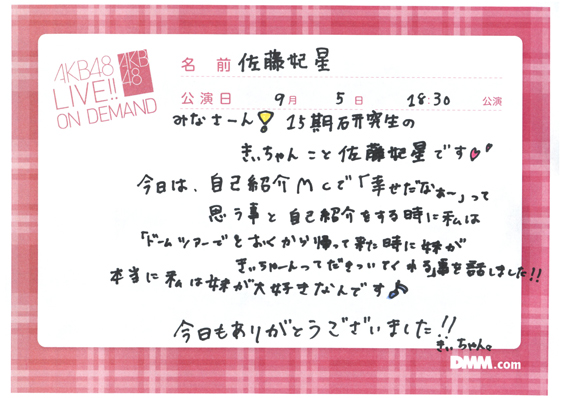 AKB48
LIVE!!
ON DEMAND
AKB
48
名前 佐藤妃星
公演日 9月 5日 18:30 公演
みなさーん! 15期研究生の
きぃちゃんこと佐藤妃星です
今日は、自己紹介MCで「幸せだなぁ~」って
思う事と自己紹介をする時に私は
「ドームツアーでとおくから帰って来た時に妹が
きぃちゃーんってだきついてくれる」事を話しました!!
本当に私は妹が大好きなんです♪
今日もありがとうございました!!
きぃちゃん。
DMM.com